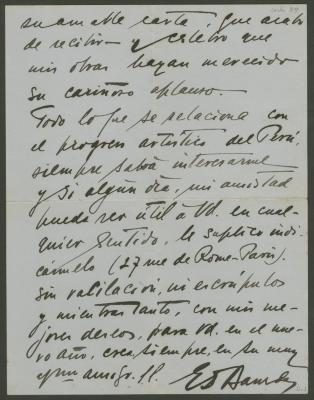 su amable carta, que acabo
de recibir y celebro que
mis obras hayan merecido
su cariñoso aplauso.
Todo lo que se relaciona con
el progreso artístico del Perú,
siempre sabrá interesarme
y si algún día, mi amistad
pueda ser útil á Vd. en cual-
quier sentido, le suplico indi-
cármelo (27 rue de Rome-París).
Sin vacilación, ni escrúpulos
y mientras tanto, con mis me-
jores deseos, para Vd. en el nue-
vo año, crea, siempre, en su muy
amigo. S.S.